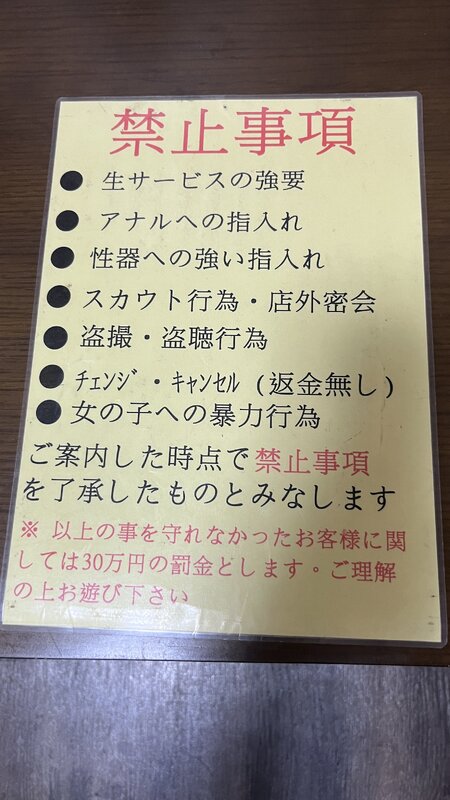 禁止事項
● 生サービスの強要
● アナルへの指入れ
● 性器への強い指入れ
● スカウト行為・店外密会
● 盗撮・盗聴行為
● ﾁｪﾝｼﾞ・ｷｬﾝｾﾙ (返金無し)
● 女の子への暴力行為
ご案内した時点で禁止事項
を了承したものとみなします
※ 以上の事を守れなかったお客様に関
しては30万円の罰金とします。ご理解
の上お遊び下さい